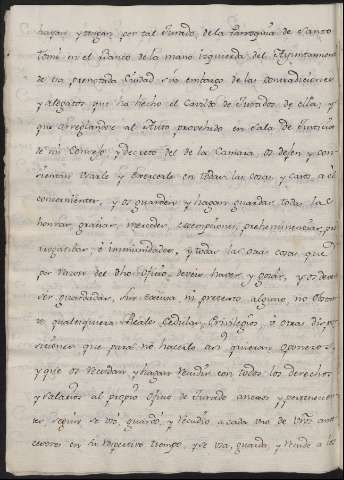 hagan, y tengan por tal Jurado, de la Parroquia de Santo
Tomé en el Banco de la mano izquierda del Ayuntamiento
de esa prenotada Ciudad sin embargo de las contradiciones
y alegatos que ha hecho el Cavildo de Jurados de ella; y
que arreglandose al Auto provehido en Sala de Justicia
de mi Consejo y decreto del de la Camara, os dejen y con
sientan usarle y exercerle en todas las cosas, y casos, a el
concernientes, y os guarden y hagan guardar todas las
honras, gracias, mercedes, exempciones, preheminencias, pre
rogativas, é inmunidades, y todas las otras cosas que
por razon del dho Oficio, deveis haver y gozar, y os deven
ser guardadas, sin escusa ni pretexto alguno, no obstan
te qualesquiera Reales Cedulas, Privilegios, ó otras dispo
siciones que para no hacerlo asi quieran oponeros:
y que os recudan y hagan recudir con todos los derechos
y salarios al propio oficio de Jurado anexos y pertenecien
tes segun se usó, guardó, y recudio a cada uno de vros ante
cesores en su respectivo tiempo, y se usa, guarda, y recude a los